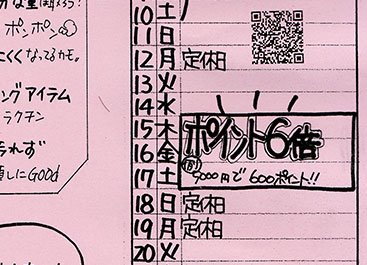 ポンポン
にくくなってるカモ。
ングアイテム
ラクチン
られず
直しにGOOD
10 土
11 日
12 月 定休日
13 火
14 水
15 木
16 金
17 土
ポイント6倍
5000円で600ポイント!!
18 日 定休日
19 月 定休日
20 火